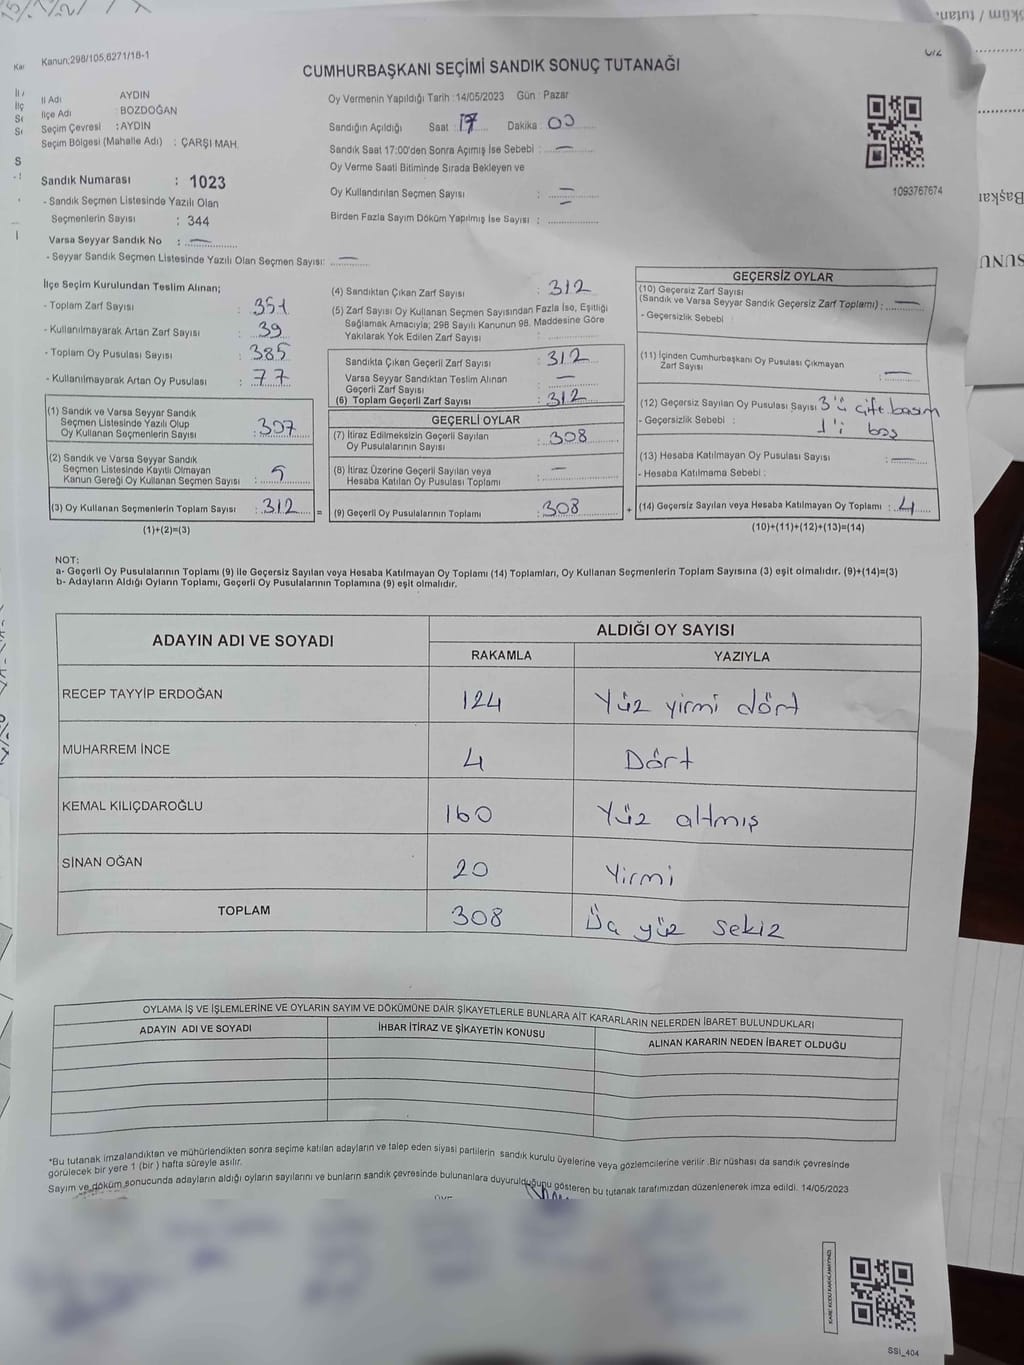 Kanun;298/105,6271/18-1
CUMHURBAŞKANI SEÇİMİ SANDIK SONUÇ TUTANAĞI
İl Adı AYDIN
İlçe Adı : BOZDOĞAN
Seçim Çevresi : AYDIN
Seçim Bölgesi (Mahalle Adı) : ÇARŞI MAH.
Sandık Numarası : 1023
- Sandık Seçmen Listesinde Yazılı Olan
Seçmenlerin Sayısı : 344
Varsa Seyyar Sandık No : —
- Seyyar Sandık Seçmen Listesinde Yazılı Olan Seçmen Sayısı: —
Oy Vermenin Yapıldığı Tarih :14/05/2023 Gün : Pazar
Sandığın Açıldığı Saat : 17 Dakika : 00
Sandık Saat 17:00'den Sonra Açımış İse Sebebi : —
Oy Verme Saati Bitiminde Sırada Bekleyen ve
Oy Kullandırılan Seçmen Sayısı : —
Birden Fazla Sayım Döküm Yapılmış İse Sayısı :
1093767674
İlçe Seçim Kurulundan Teslim Alınan;
- Toplam Zarf Sayısı : 351
- Kullanılmayarak Artan Zarf Sayısı : 39
- Toplam Oy Pusulası Sayısı : 385
- Kullanılmayarak Artan Oy Pusulası : 77
(1) Sandık ve Varsa Seyyar Sandık
Seçmen Listesinde Yazılı Olup
Oy Kullanan Seçmenlerin Sayısı : 307
(2) Sandık ve Varsa Seyyar Sandık
Seçmen Listesinde Kayıtlı Olmayan
Kanun Gereği Oy Kullanan Seçmen Sayısı : 5
(3) Oy Kullanan Seçmenlerin Toplam Sayısı : 312 =
(1)+(2)=(3)
(4) Sandıktan Çıkan Zarf Sayısı : 312
(5) Zarf Sayısı Oy Kullanan Seçmen Sayısından Fazla İse, Eşitliği
Sağlamak Amacıyla; 298 Sayılı Kanunun 98. Maddesine Göre
Yakılarak Yok Edilen Zarf Sayısı :
Sandıkta Çıkan Geçerli Zarf Sayısı : 312
Varsa Seyyar Sandıktan Teslim Alınan
Geçerli Zarf Sayısı : —
(6) Toplam Geçerli Zarf Sayısı : 312
GEÇERLİ OYLAR
(7) İtiraz Edilmeksizin Geçerli Sayılan
Oy Pusulasının Sayısı : 308
(8) İtiraz Üzerine Geçerli Sayılan veya
Hesaba Katılan Oy Pusulası Toplamı : —
(9) Geçerli Oy Pusulalarının Toplamı : 308 +
GEÇERSİZ OYLAR
(10) Geçersiz Zarf Sayısı
(Sandık ve Varsa Seyyar Sandık Geçersiz Zarf Toplamı) : —
- Geçersizlik Sebebi :
(11) İçinden Cumhurbaşkanı Oy Pusulası Çıkmayan
Zarf Sayısı : —
(12) Geçersiz Sayılan Oy Pusulası Sayısı 3'ü çift basım
- Geçersizlik Sebebi : 1'i boş
(13) Hesaba Katılmayan Oy Pusulası Sayısı : —
- Hesaba Katılmama Sebebi :
(14) Geçersiz Sayılan veya Hesaba Katılmayan Oy Toplamı : 4
(10)+(11)+(12)+(13)=(14)
NOT:
a- Geçerli Oy Pusulalarının Toplamı (9) ile Geçersiz Sayılan veya Hesaba Katılmayan Oy Toplamı (14) Toplamları, Oy Kullanan Seçmenlerin Toplam Sayısına (3) eşit olmalıdır. (9)+(14)=(3)
b- Adayların Aldığı Oyların Toplamı, Geçerli Oy Pusulalarının Toplamına (9) eşit olmalıdır.
ADAYIN ADI VE SOYADI ALDIĞI OY SAYISI
RAKAMLA YAZIYLA
RECEP TAYYİP ERDOĞAN 124 Yüz yirmi dört
MUHARREM İNCE 4 Dört
KEMAL KILIÇDAROĞLU 160 Yüz altmış
SİNAN OĞAN 20 Yirmi
TOPLAM 308 Üç yüz sekiz
OYLAMA İŞ VE İŞLEMLERİNE VE OYLARIN SAYIM VE DÖKÜMÜNE DAİR ŞİKAYETLERLE BUNLARA AİT KARARLARIN NELERDEN İBARET BULUNDUKLARI
ADAYIN ADI VE SOYADI İHBAR İTİRAZ VE ŞİKAYETİN KONUSU ALINAN KARARIN NEDEN İBARET OLDUĞU
*Bu tutanak imzalandıktan ve mühürlendikten sonra seçime katılan adayların ve talep eden siyasi partilerin sandık kurulu üyelerine veya gözlemcilerine verilir .Bir nüshası da sandık çevresinde
görülecek bir yere 1 (bir ) hafta süreyle asılır.
Sayım ve döküm sonucunda adayların aldığı oyların sayılarını ve bunların sandık çevresinde bulunanlara duyurulduğunu gösteren bu tutanak tarafımızdan düzenlenerek imza edildi. 14/05/2023
SSI_404